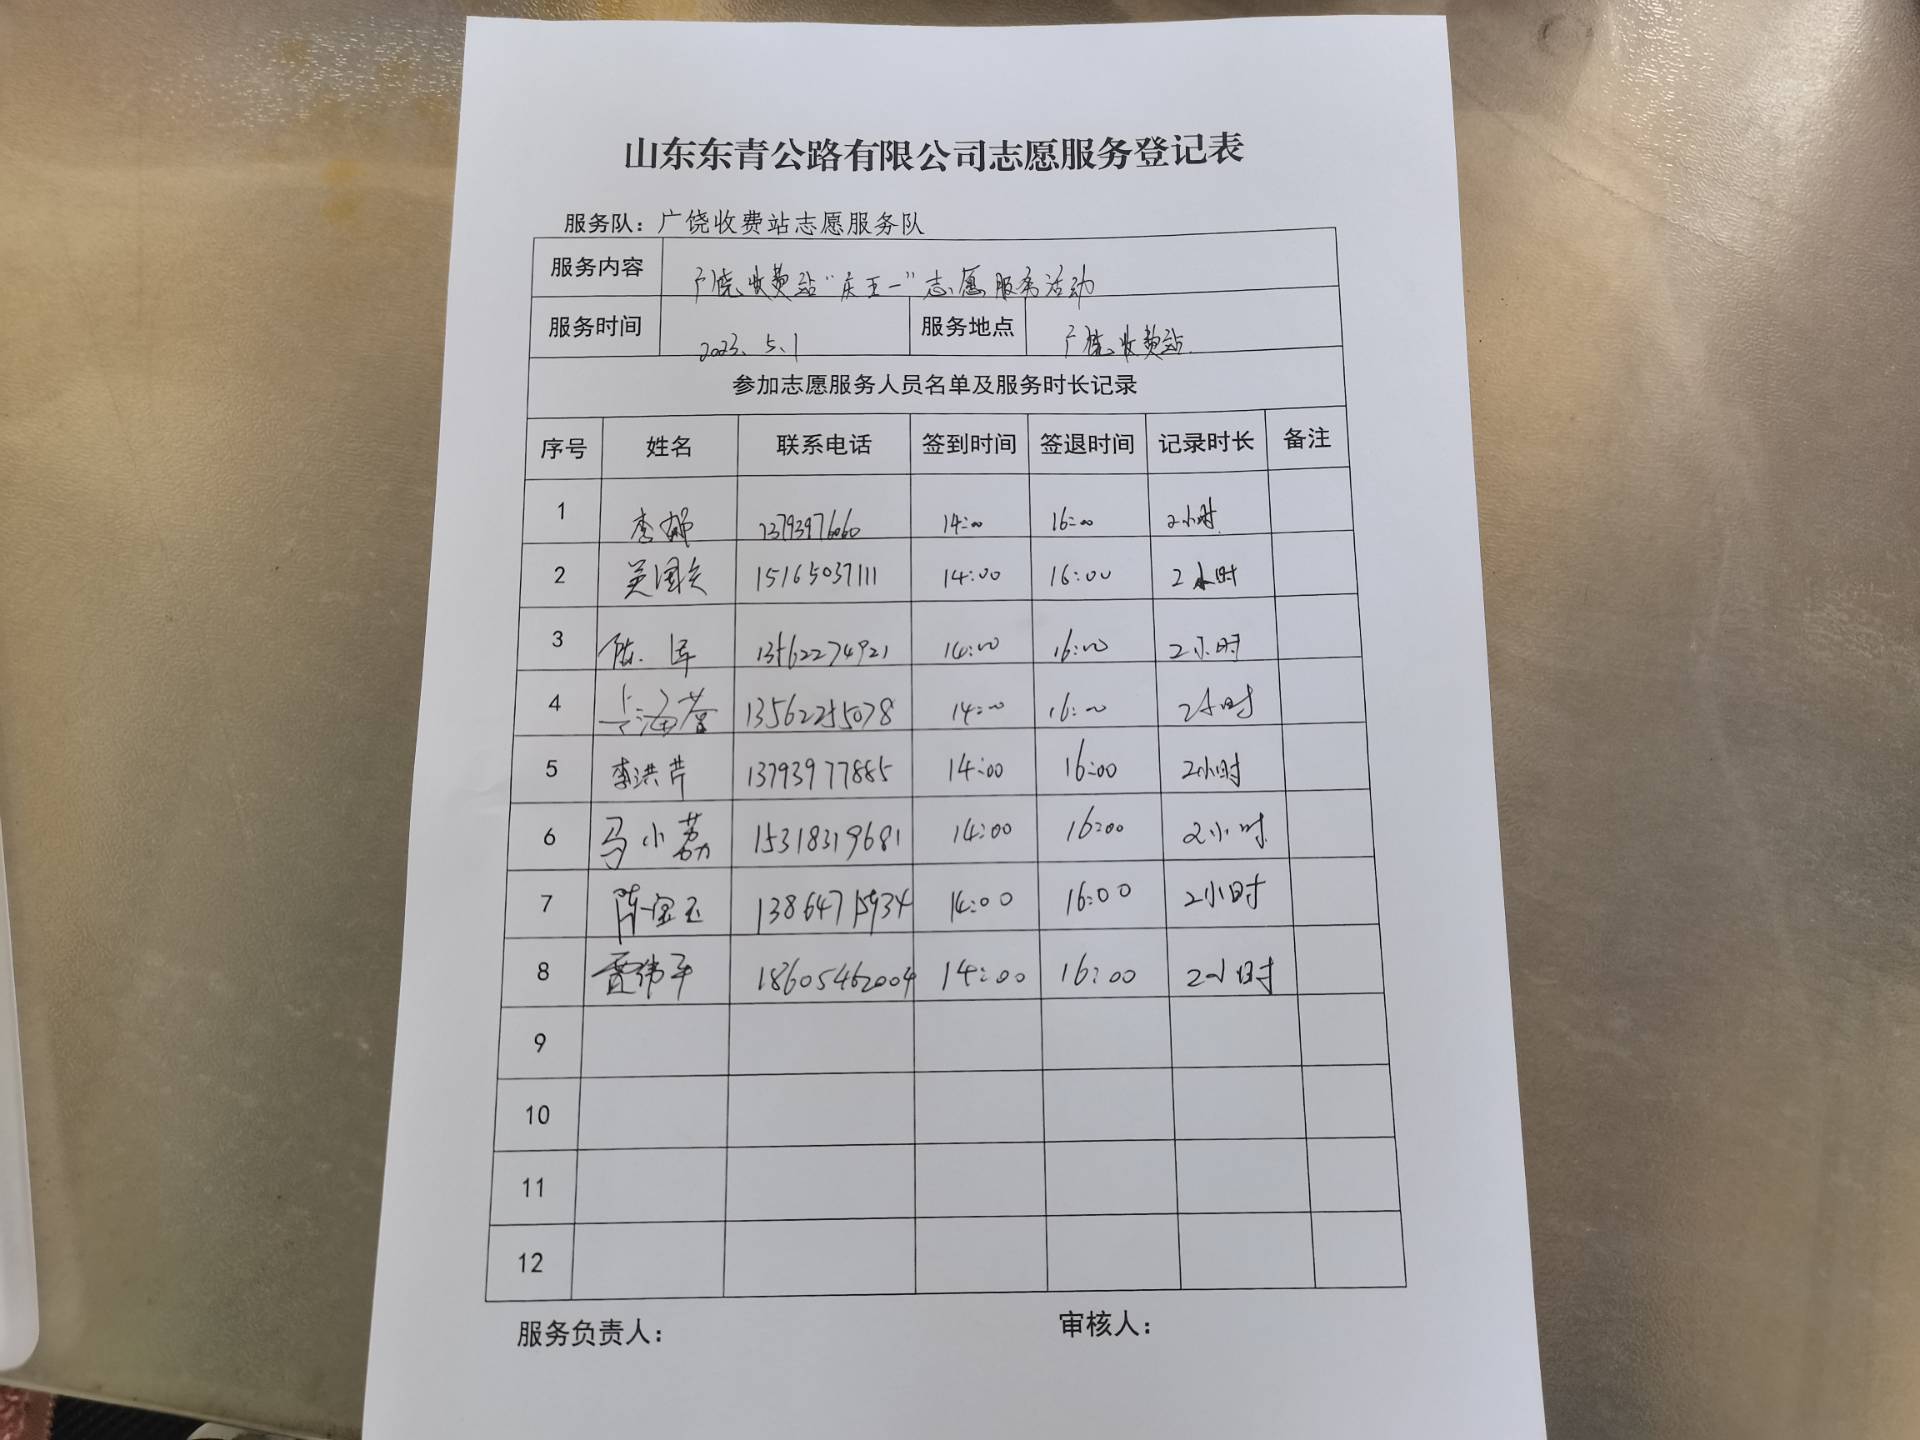 山东东青公路有限公司志愿服务登记表
服务队：广饶收费站志愿服务队
服务内容 广饶收费站“庆五一”志愿服务活动
服务时间 2023.5.1 服务地点 广饶收费站
参加志愿服务人员名单及服务时长记录
序号 姓名 联系电话 签到时间 签退时间 记录时长 备注
1 李娜 13793976060 14:00 16:00 2小时
2 吴国 15165037111 14:00 16:00 2小时
3 陈军 13562274921 14:00 16:00 2小时
4 海 13562255078 14:00 16:00 2小时
5 李洪芹 13793977885 14:00 16:00 2小时
6 马小荔 15318319681 14:00 16:00 2小时
7 陈宝玉 13864715934 14:00 16:00 2小时
8 贾伟平 18605462004 14:00 16:00 2小时
9
10
11
12
服务负责人： 审核人：